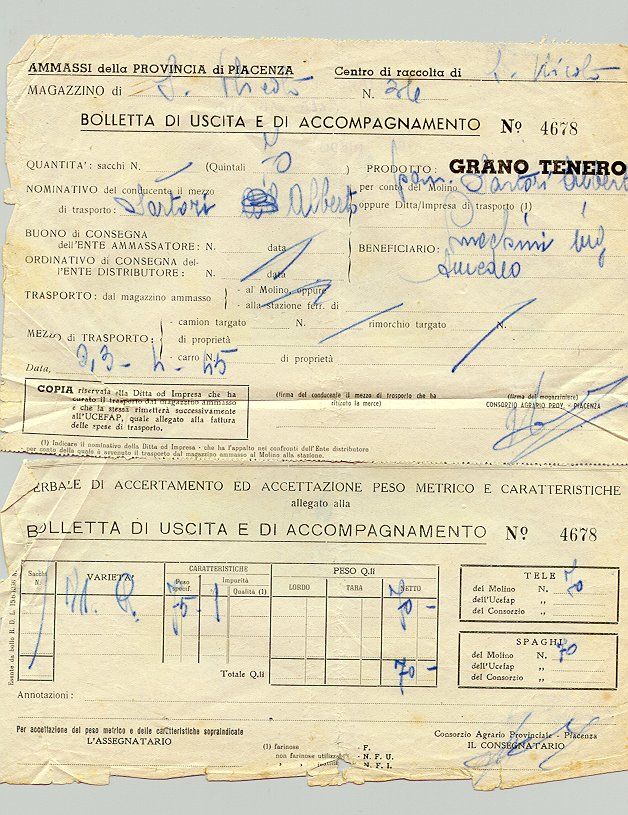 AMMASSI della PROVINCIA di PIACENZA Centro di raccolta di S. Nicolò
MAGAZZINO di S. Nicolò N. 34
BOLLETTA DI USCITA E DI ACCOMPAGNAMENTO Nº 4678
QUANTITA': sacchi N. (Quintali 70) PRODOTTO: GRANO TENERO
NOMINATIVO del conducente il mezzo per conto del Molino Sartori Alberto
di trasporto: Sartori Alberto oppure Ditta/Impresa di trasporto (1)
BUONO DI CONSEGNA
dell'ENTE AMMASSATORE: N. data BENEFICIARIO:
ORDINATIVO DI CONSEGNA del-
l'ENTE DISTRIBUTORE: N. data Amedeo
TRASPORTO: dal magazzino ammasso - al Molino, oppure
- alla stazione ferr. di
- camion targato N. rimorchio targato N.
MEZZO DI TRASPORTO: di proprietà
- carro N. di proprietà
Data, 23-4-45
COPIA riservata alla Ditta od Impresa che ha
curato il trasporto dal magazzino ammasso
e che la stessa rimetterà successivamente
all'UCEFAP, quale allegato alla fattura
delle spese di trasporto.
(firma del conducente il mezzo di trasporto che ha
ritirato la merce)
(firma del magazziniere)
CONSORZIO AGRARIO PROV. - PIACENZA
(1) Indicare il nominativo della Ditta od Impresa - che ha l'appalto nei confronti dell'Ente distributore
per conto della quale è avvenuto il trasporto dal magazzino ammasso al Molino alla stazione.
VERBALE DI ACCERTAMENTO ED ACCETTAZIONE PESO METRICO E CARATTERISTICHE
allegato alla
BOLLETTA DI USCITA E DI ACCOMPAGNAMENTO Nº 4678
Sacchi N. VARIETA' CARATTERISTICHE PESO Q.li
Peso specif. Impurità Qualità (1) LORDO TARA NETTO
75 1 70 -
Totale Q.li 70 -
TELE
del Molino N. 70
dell'Ucefap „
del Consorzio „
SPAGHI
del Molino N. 70
dell'Ucefap „
del Consorzio „
Annotazioni:
Per accettazione del peso metrico e delle caratteristiche sopraindicate
L'ASSEGNATARIO
Consorzio Agrario Provinciale - Piacenza
IL CONSEGNATARIO
(1) farinose - F.
non farinose utilizzabili - N. F. U.
„ „ - N. F. I.